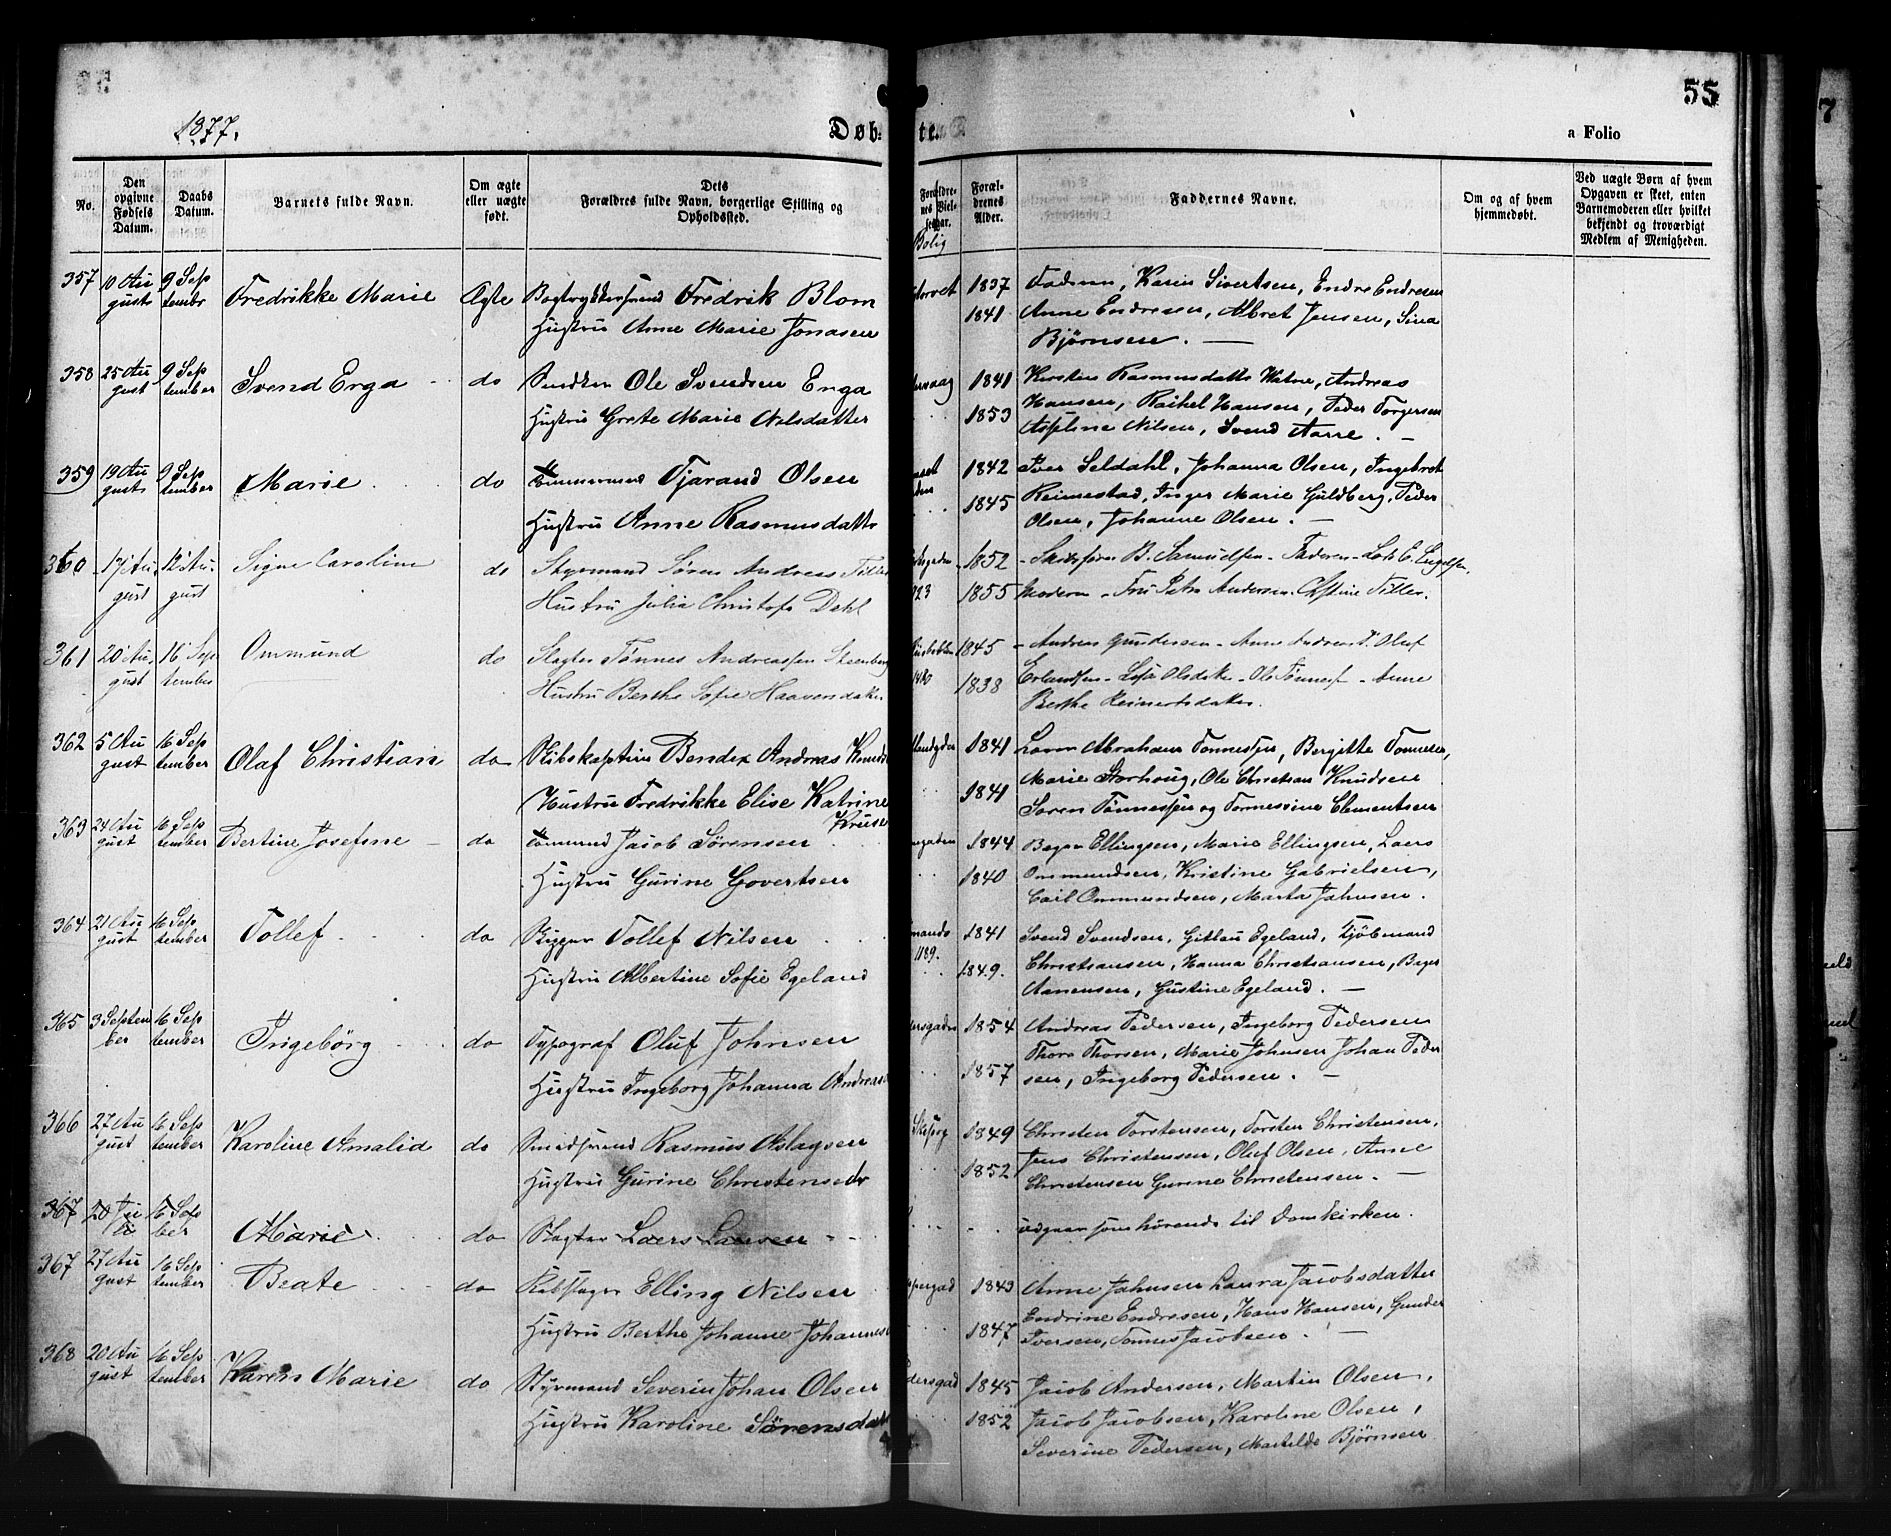 1877.
Døb-
te.
55
a Folio
No.
Den opgivne Fødsels Datum.
Daabs Datum.
Barnets fulde Navn.
Om ægte eller uægte født.
Dets Forældres fulde Navn, borgerlige Stilling og Opholdssted.
Bolig
Foræl-drenes Alder.
Faddernes Navne.
Om og af hvem hjemmedøbt.
Ved uægte Børn af hvem Opgaven er skeet, enten Barnemoderen eller hvilket bekjendt og troværdigt Medlem af Menigheden.
357 10 Au 9 Sep
gust tembr Fredrikke Marie Ægte Fredrik Blom
Hustru Anne Marie Jonasen
torvet 1837 Faderen, Karen Sivertsen, Endre Endresen
1841. Anne Endresen, Albret Jensen, Sina
Bjørnsen. —
358 25 Au 9 Sep
gust tember Svend Enga do Ole Svendsen Enga
Hustru Grete Marie Nilsdatter
1841 Kirsten Rasmusdatter Watne, Andreas
1853 Hansen, Raihel Hansen, Peder Torgersen
Nilsen, Svend Aarre. —
359 19 Au 9 Sep
gust tember Marie do Tømmermand Tjarand Olsen
Hustru Anne Rasmusdatter
1842 Iver Seldahl, Johanna Olsen, Ingebret
1845 Reimestad, Inger Marie Guldberg, Peder
Olsen, Johanne Olsen. —
360 17 Au 12 Au
gust gust Signe Caroline do Styrmand Søren Andreas Tiller
Hustru Julia Christofa Dahl
1852 - Skibsfører B. Samuelsen - Faderen - Lods C. Engelsen.
1855 Moderen - Fru Petra Andersen - Tiller.
361 20 Au 16 Sep
gust tember Ommund do Slagter Tønnes Andreassen
Hustru Berthe Sofie Haavorsdatter
1845 - Andreas Gundersen - Anne Oluf
1838 Erlandsen - Lisa Olsdatter - Ole Tønnes - Anne
Berthe Reinertsdatter.
362 5 Au 16 Sep
gust tember Olaf Christian do Skibskaptein Bendix Andreas Knud
Hustru Fredrikke Elise Katrine
Kruse
1841 Abraham Tønnesen, Bergitte Tønnesen,
1841 Marie Storhoug, Ole Christian Knudsen
Søren Tønnessen og Tønnessine Clementsen
363 24 Au 16 Sep
gust tember Bertine Josefine do Tømmermand Jacob Sørensen
Hustru Gurine Govertsen
1844 Ellingsen, Marie Ellingsen, Laers
1840 Ommundsen, Kristine Gabrielsen,
Carl Ommundsen, Marta Jahnsen.
364 21 Au 16 Sep
gust tember Tollef do Skipper Tollef Nilsen
Hustru Albertine Sofie Egeland
1189. 1841 Svend Svendsen, Gitlau Egeland, Kjöbmand
1849. Christiansen, Hanna Christiansen,
Aanensen, Gustine Egeland. —
365 3 Septem 16 Sep
ber tember Ingebörg do Typograf Oluf Johnsen
Hustru Ingeborg Johanna Andreas
1854 Andreas Pedersen, Ingeborg Pedersen
1857 Thore Thorsen, Marie Johnsen Johan Peder
sen, Ingeborg Pedersen. —
366 27 Au 16 Sep
gust tember Karoline Amalia do Smedsvend Rasmus Aslagsen
Hustru Gurine Christensedr
1849 Christen Torstensen, Torsten Christensen,
1852 Jens Christensen, Oluf Olsen, Anne
Christensen Gurine Christensen. —
367 20 Ju 16 Sep
li ber Marie do Slagter Laers Larsen
udgaar som hørende til Domkirken.
367 27 Au 16 Sep
gust tember Beate do Rebslager Elling Nilsen
Hustru Berthe Johanne Johannes
1843 Anne Jahnsen Laura Jacobsdatter
1847 Endrine Endresen, Hans Hansen, Gunder
Iversen, Tønnes Jacobsen. —
368 20 Au 16 Sep
gust tember Karen Marie do Styrmand Severin Johan Olsen
Hustru Karoline Sørensdatter
1845 Jacob Andersen, Martin Olsen,
1852 Jacob Jacobsen, Karoline Olsen,
Severine Pedersen, Matilde Bjørnsen